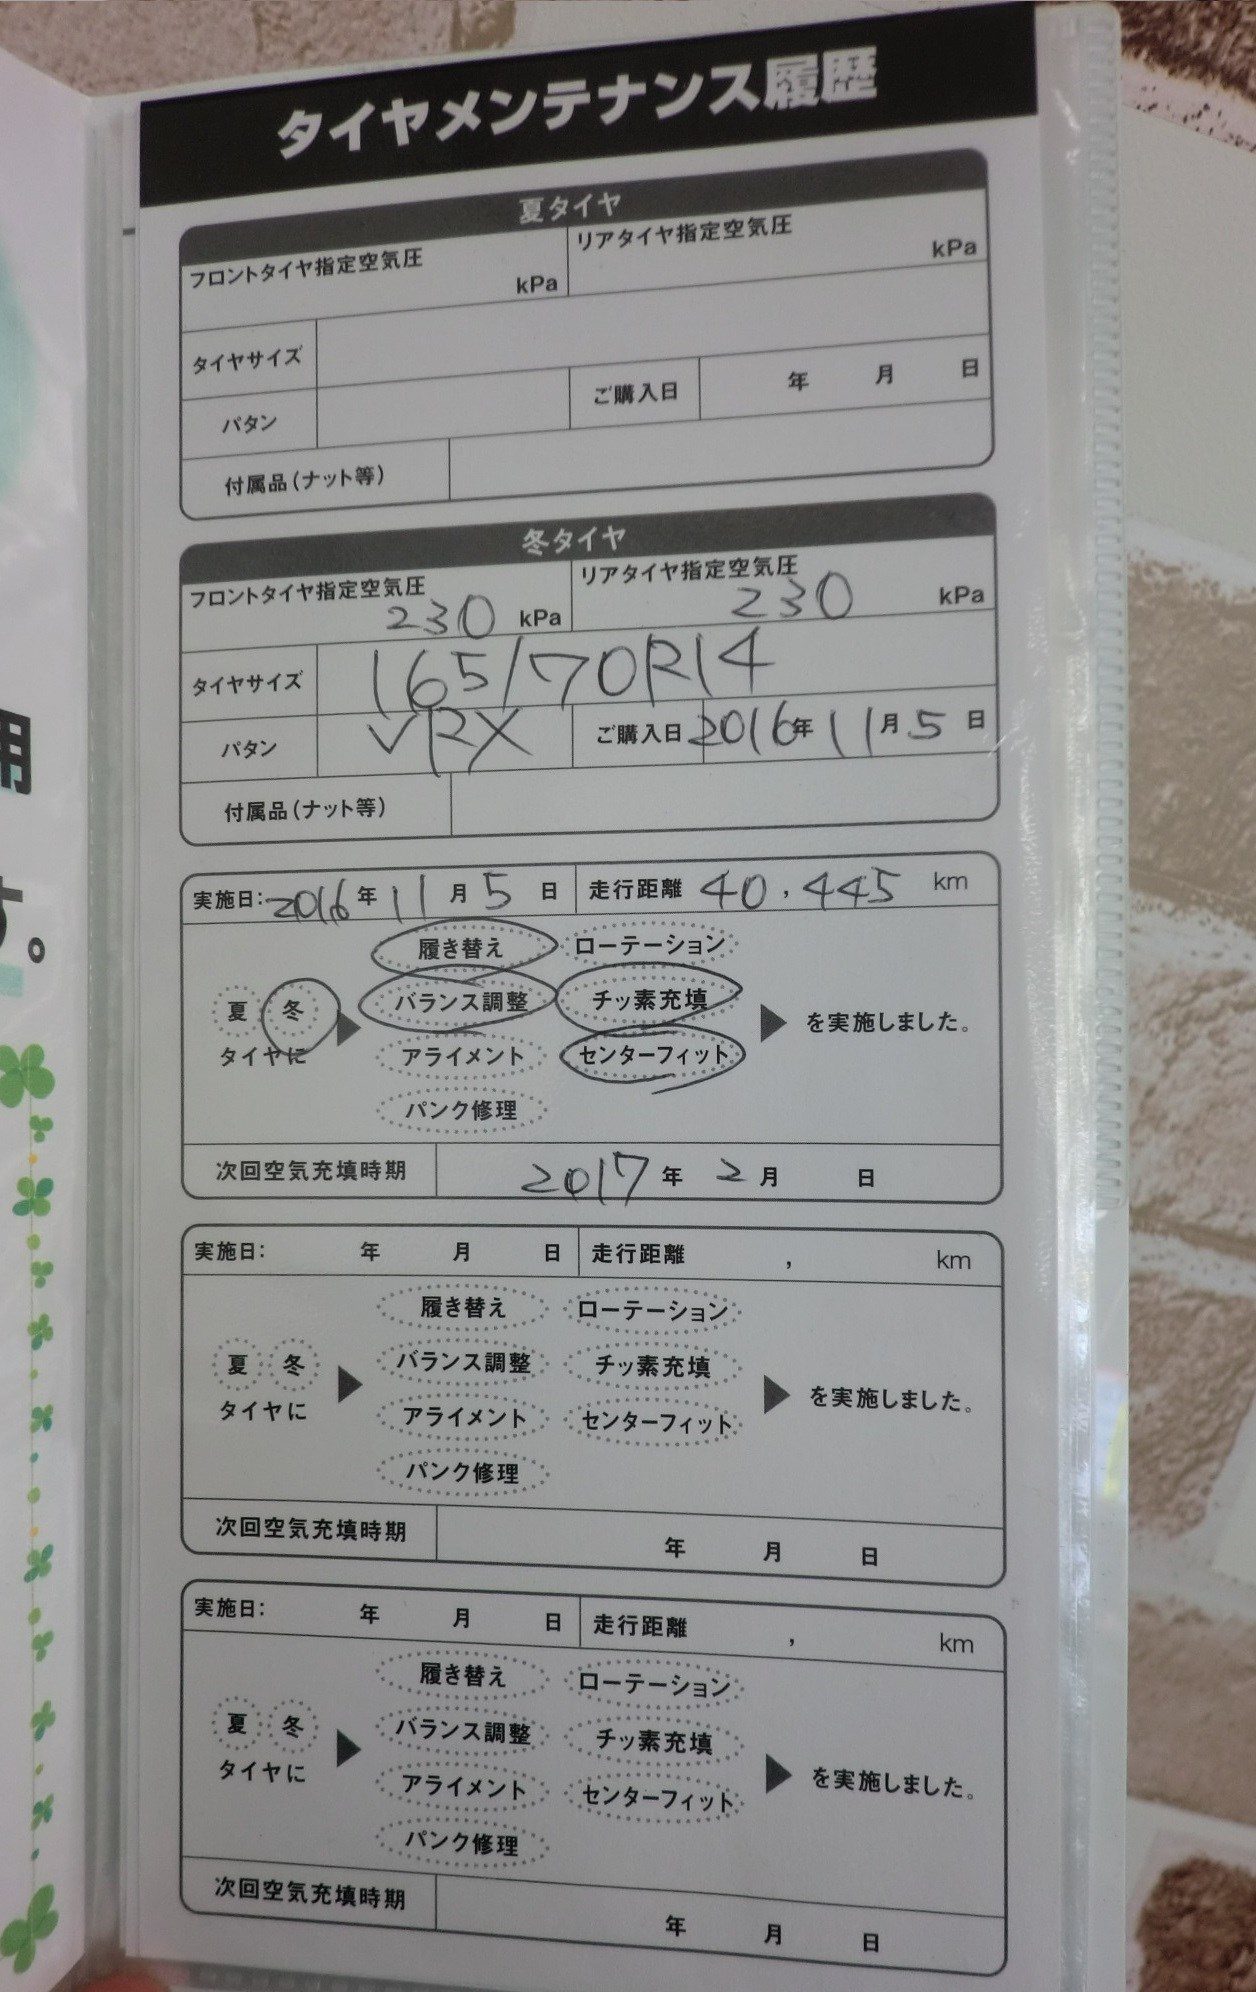 タイヤメンテナンス履歴
夏タイヤ
フロントタイヤ指定空気圧 kPa リアタイヤ指定空気圧 kPa
タイヤサイズ
パタン ご購入日 年 月 日
付属品(ナット等)
冬タイヤ
フロントタイヤ指定空気圧 230 kPa リアタイヤ指定空気圧 230 kPa
タイヤサイズ 165/70R14
パタン VRX ご購入日 2016年 11月 5日
付属品(ナット等)
実施日:2016年 11月 5日 走行距離 40,445 km
履き替え ローテーション
夏 冬 バランス調整 チッ素充填 を実施しました。
タイヤに アライメント センターフィット
パンク修理
次回空気充填時期 2017年 2月 日
実施日: 年 月 日 走行距離 , km
履き替え ローテーション
夏 冬 バランス調整 チッ素充填 を実施しました。
タイヤに アライメント センターフィット
パンク修理
次回空気充填時期 年 月 日
実施日: 年 月 日 走行距離 , km
履き替え ローテーション
夏 冬 バランス調整 チッ素充填 を実施しました。
タイヤに アライメント センターフィット
パンク修理
次回空気充填時期 年 月 日
用
す。